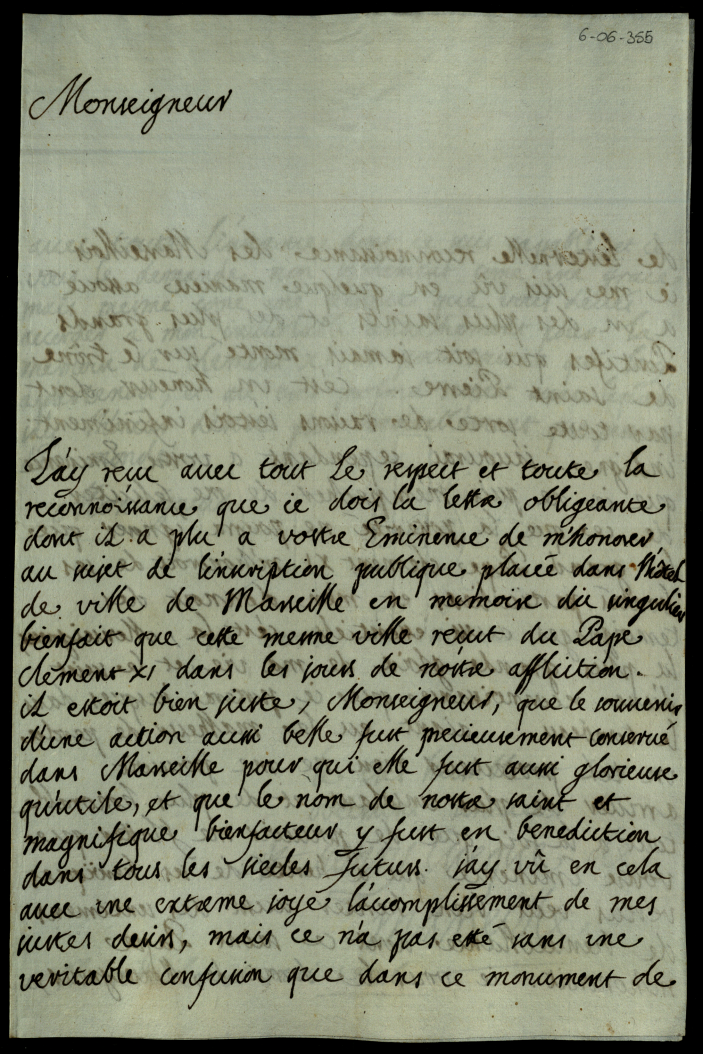 6-06-355
Monseigneur
J'ay reçu avec tout le respect et toute la
reconnoissance que ie dois la lettre obligeante
dont il a plu a vostre Eminence de m'honorer
au sujet de l'inscription publique placée dans l'hôtel
de ville de Marseille en memoire du singulier
bienfait que cette mesme ville reçut du Pape
Clement XI dans les jours de nostre affliction.
il estoit bien juste, Monseigneur, que le souvenir
d'une action aussi belle fust precieusement conservé
dans Marseille pour qui elle fust aussi glorieuse
qu'utile, et que le nom de nostre saint et
magnifique bienfacteur y fust en benediction
dans tous les siecles futurs. j'ay vû en cela
avec une extreme joye l'accomplissement de mes
justes desirs, mais ce n'a pas esté sans une
veritable confusion que dans ce monument de